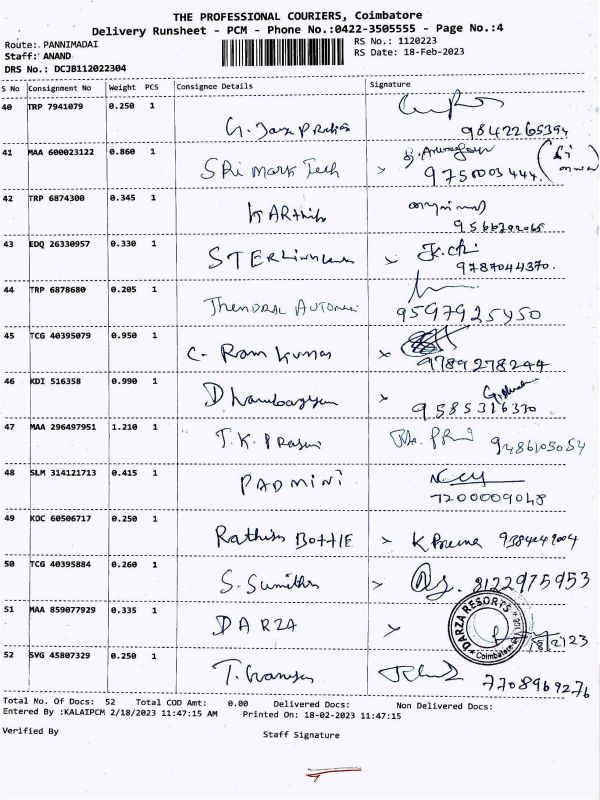 THE PROFESSIONAL COURIERS, Coimbatore
Delivery Runsheet - PCM - Phone No.:0422-3505555 - Page No.:4
Route: PANNIMADAI
RS No.: 1120223
Staff: ANAND
RS Date: 18-Feb-2023
DRS No.: DCJB112022304
S No Consignment No Weight PCS Consignee Details Signature
40 TRP 7941079 0.250 1
G. Jaya Prakas 9842265394
41 MAA 600023122 0.860 1
SRi Mark Tech 9750003444.
42 TRP 6874300 0.345 1
KARthik
43 EDQ 26330957 0.330 1
9787044370.
44 TRP 6878680 0.205 1
Thendral 9597925450
45 TCG 40395079 0.950 1
C. Ram Kumar 9789278244
46 KDI 516358 0.990 1
9585316330
47 MAA 296497951 1.210 1
T.K. 9486105054
48 SLM 314121713 0.415 1
PADMINI
7200009048
49 KOC 60506717 0.250 1
BOTTLE K Prema 9384241004
50 TCG 40395884 0.260 1
S. Sumithra 8122975953
51 MAA 859077929 0.335 1
DARZA
DARZA RESORTS
Coimbatore
52 SVG 45807329 0.250 1
7708969276
Total No. Of Docs: 52 Total COD Amt: 0.00 Delivered Docs: Non Delivered Docs:
Entered By :KALAIPCM 2/18/2023 11:47:15 AM Printed On: 18-02-2023 11:47:15
Verified By
Staff Signature